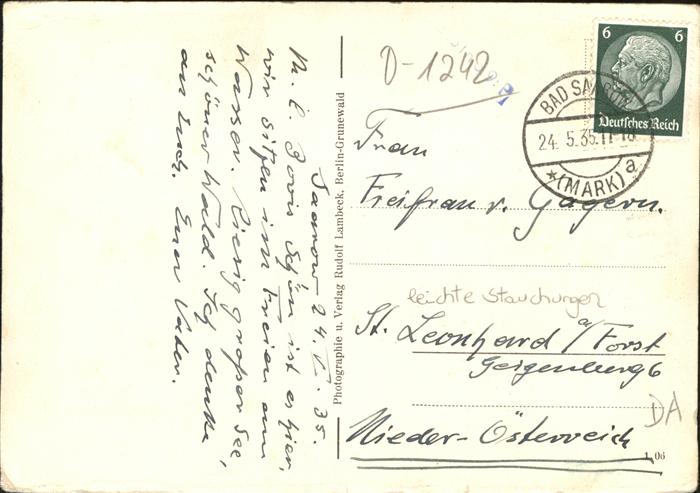 Saarow 24.V.35.
M. l. Doris Schön ist es hier,
wir sitzen im Freien am
Wasser. Riesig großer See,
schöner Wald. Ich denke
an Euch. Euer Vater.
Photographie u. Verlag Rudolf Lambeck, Berlin-Grunewald
D-1242
6 6
Deutsches Reich
BAD SAAROW
24. 5. 35. 17-18
(MARK) a
Frau
Freifrau v. Gagern.
leichte Stauchungen
St. Leonhard a/Forst
Geigenberg 6
Nieder-Österreich
DA
1, 06